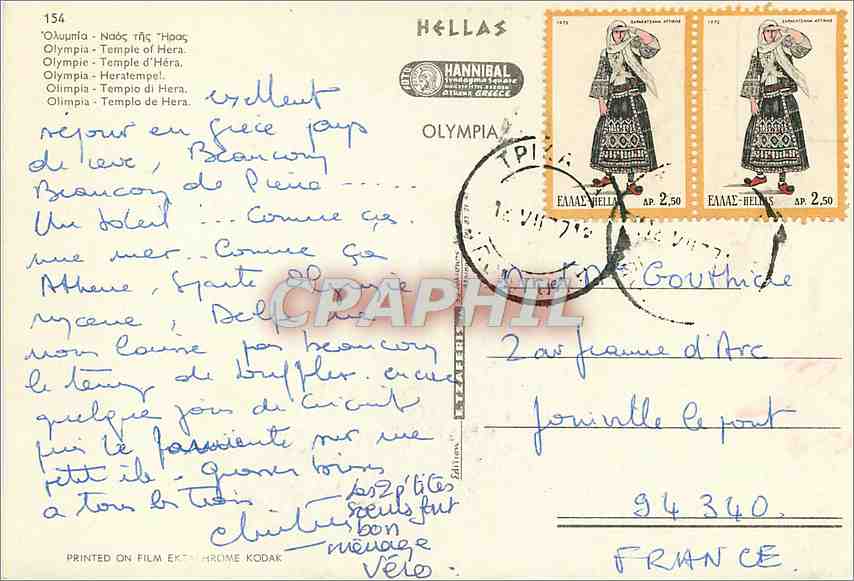 154
Ὀλυμπία - Ναός τῆς Ἥρας
Olympia - Temple of Hera.
Olympie - Temple d'Héra.
Olympia - Heratempel.
Olimpia - Tempio di Hera.
Olimpia - Templo de Hera.
HELLAS
FOTO
HANNIBAL
Syndagma Square
Athens GREECE
OLYMPIA
1972
1972
ΕΛΛΑΣ-HELLAS ΔΡ. 2,50
ΕΛΛΑΣ-HELLAS ΔΡ. 2,50
exellent
séjour en Grèce pays
de reve, Beaucoup
Beaucoup de Pierre ......
Un soleil ... Comme ça
une mer .. Comme ça
Athene, Sparte Olympie
mycene, Delphe ne
nous laisse pas beaucoup
le temps de souffler. encore
quelque jours de circuit
puis le farniente sur une
petit ile. Grosses bises
a tous les trois
les 2 p'tites
soeurs font
bon
ménage
Véro.
M et Me Gouthière
2 av Jeanne d'Arc
Joinville le pont
94340.
FRANCE.
PRINTED ON FILM EKTACHROME KODAK
CPAPHIL